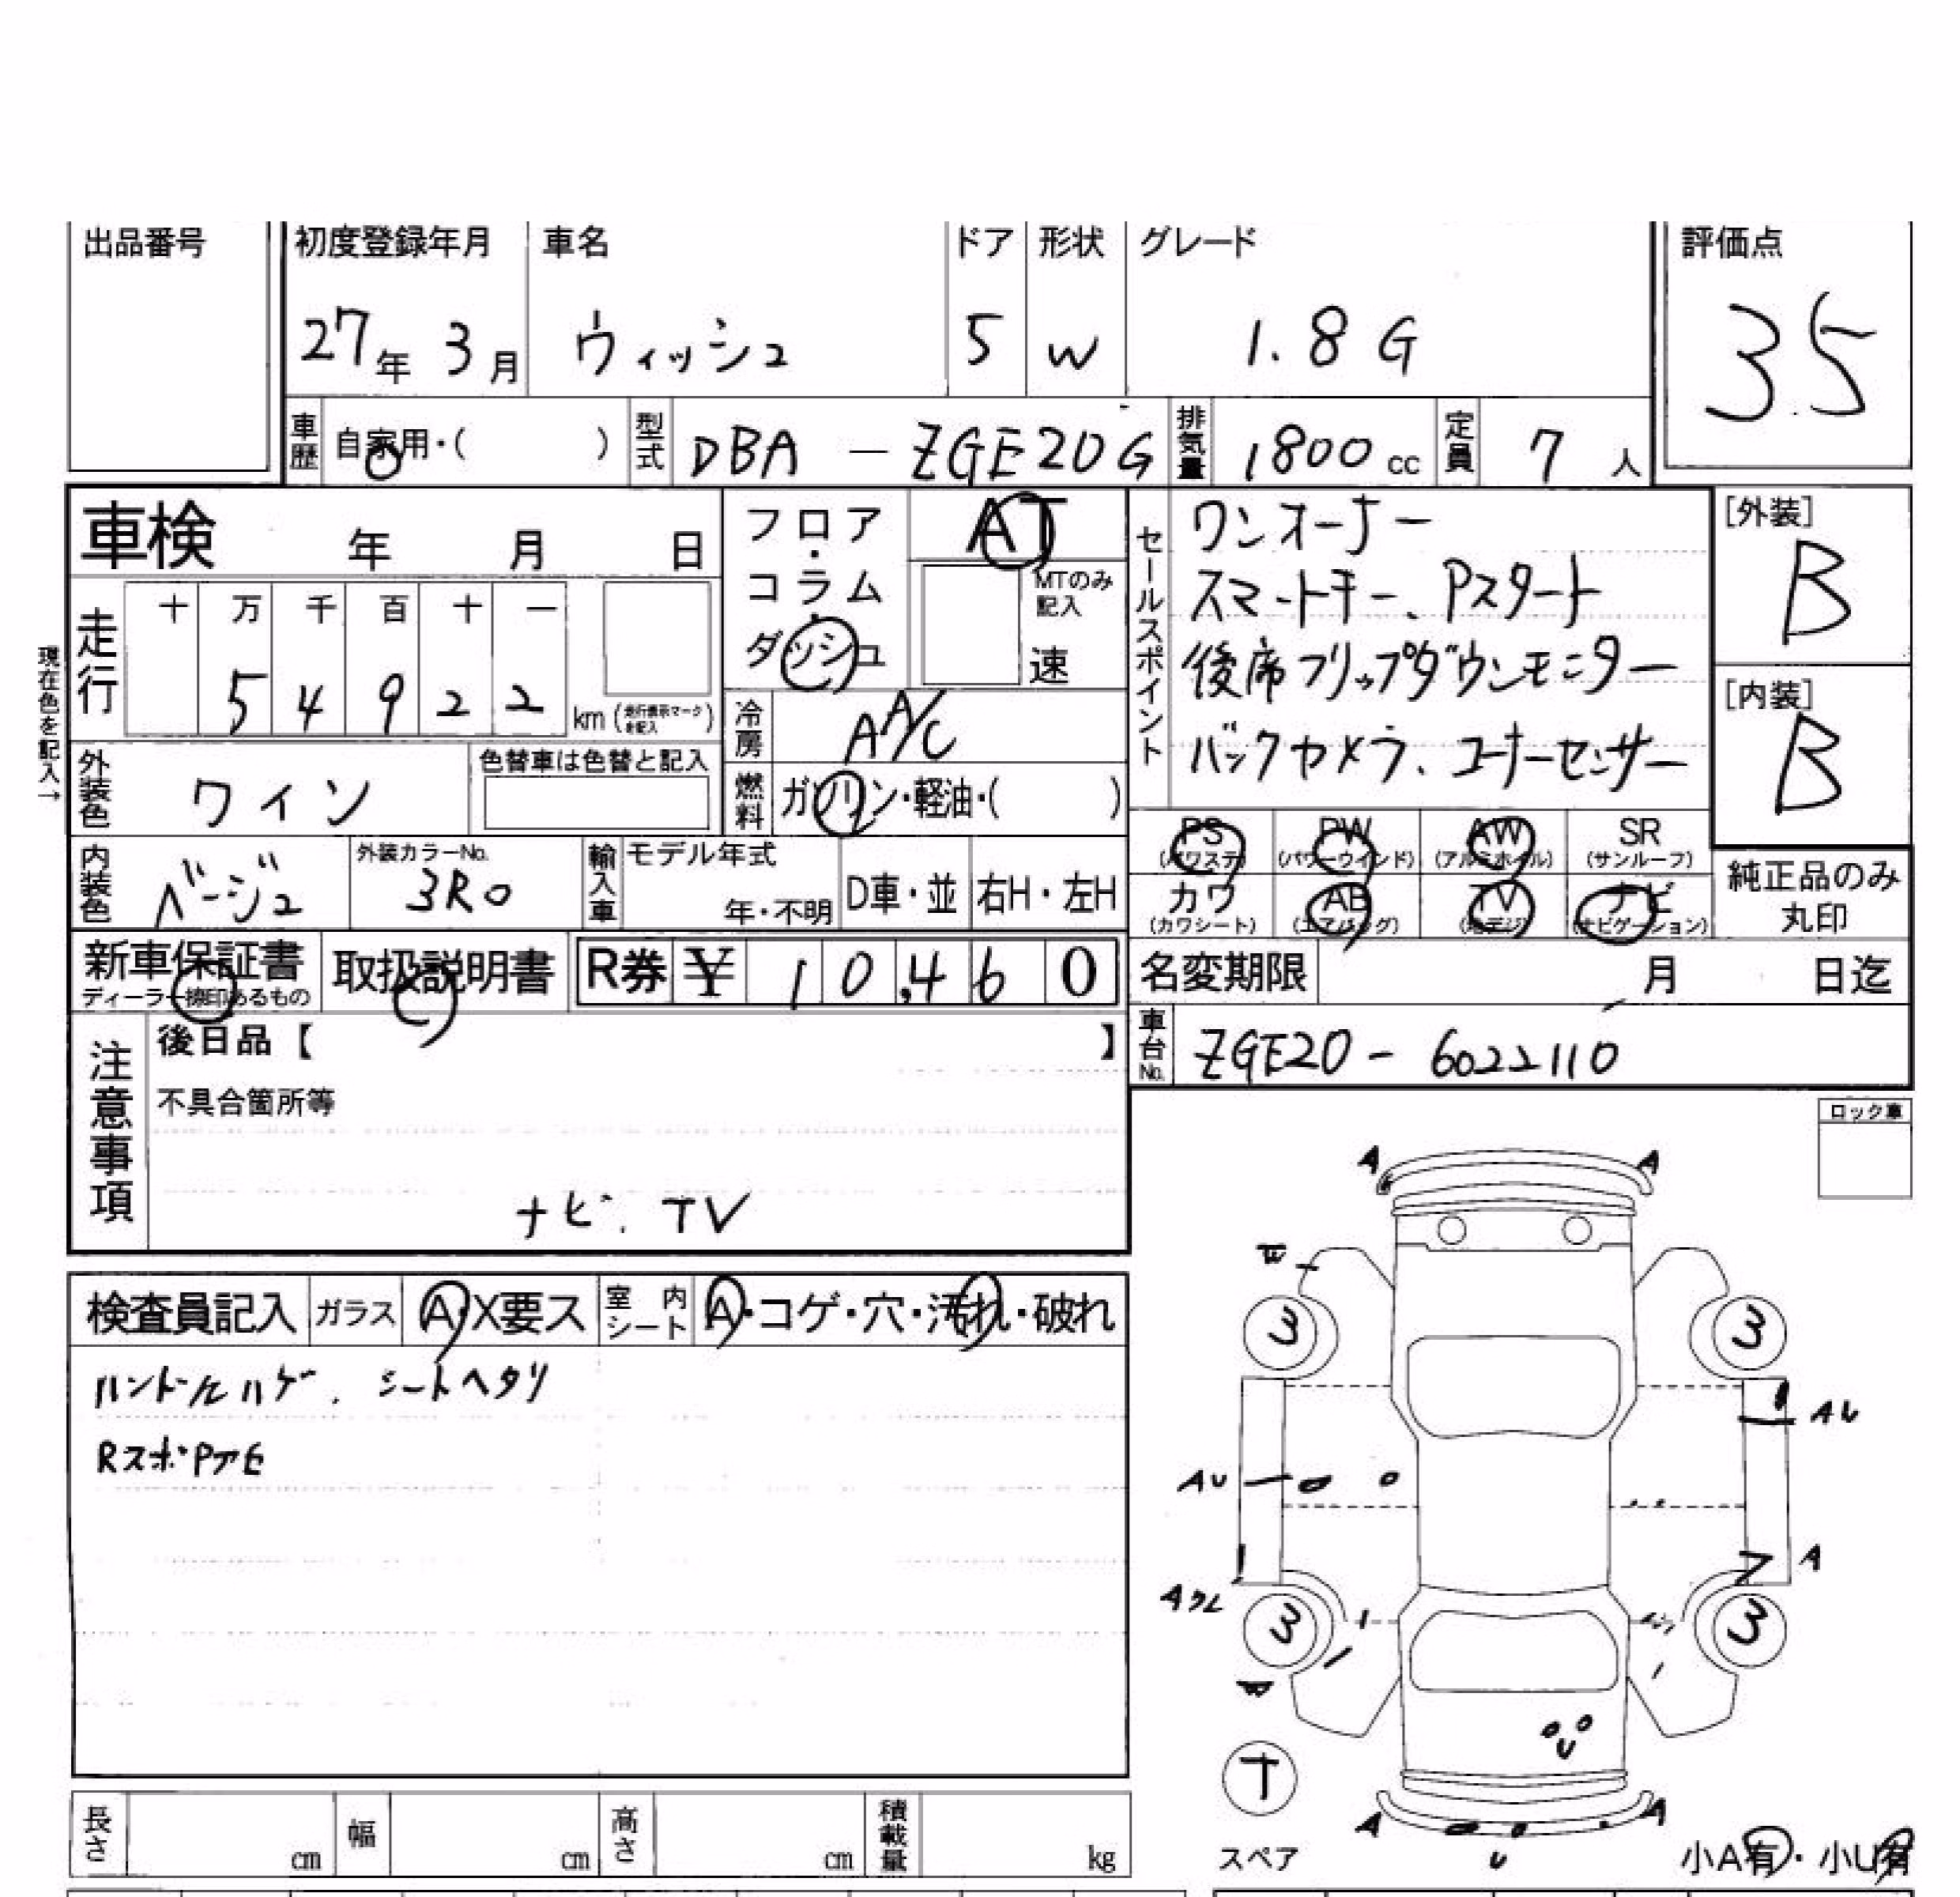 出品番号 初度登録年月 車名 ドア 形状 グレード 評価点
27年 3月 ウィッシュ 5 W 1.8 G 3.5
車歴 自家用・( ) 型式 DBA - ZGE20G 排気量 1800 cc 定員 7 人
車検 年 月 日
フロア・コラム・ダッシュ
AT
MTのみ記入
速
セールスポイント
ワンオーナー
スマートキー、Pスタート
後席フリップダウンモニター
バックカメラ、コーナーセンサー
[外装]
B
[内装]
B
現在色を記入→
走行 十 万 千 百 十 一
5 4 9 2 2 km (走行表示マークを記入)
冷房 AA/C
外装色 ワイン 色替車は色替と記入
燃料 ガソリン・軽油・( )
PS (パワステ) PW (パワーウインド) AW (アルミホイル) SR (サンルーフ)
カワ (カワシート) AB (エアバッグ) TV (地デジ) ナビ (ナビゲーション)
純正品のみ
丸印
内装色 ベージュ 外装カラーNo. 3R0 輸入車 モデル年式 年・不明 D車・並 右H・左H
新車保証書 ディーラー捺印あるもの 取扱説明書 R券 ¥ 10,460
名変期限 月 日迄
車台No. ZGE20 - 6022110
注意事項
後日品【 】
不具合箇所等
ナビ、TV
ロック車
検査員記入 ガラス A・X要ス 室内シート A・コゲ・穴・汚れ・破れ
ハンドルハゲ、シートヘタリ
RスポPアE
A A
3 3
AU
AU
A
3 3
T
A A
U
スペア
小A有・小U有
長さ cm 幅 cm 高さ cm 積載量 kg